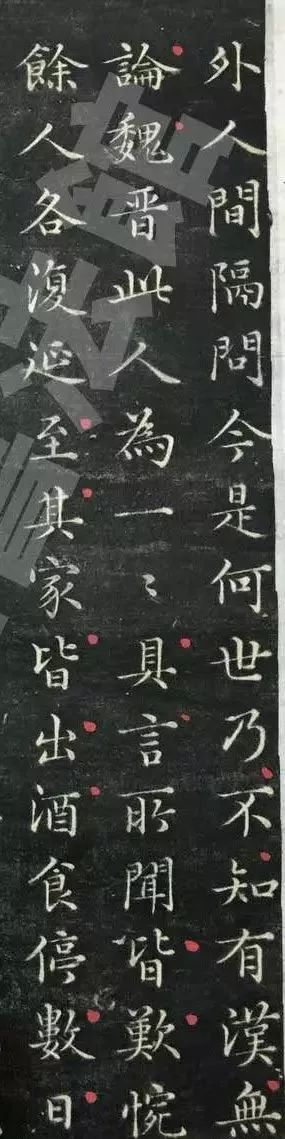 外人間隔問今是何世乃不知有漢無
論魏晋此人為一〻具言所聞皆歎惋
餘人各復延至其家皆出酒食停數日